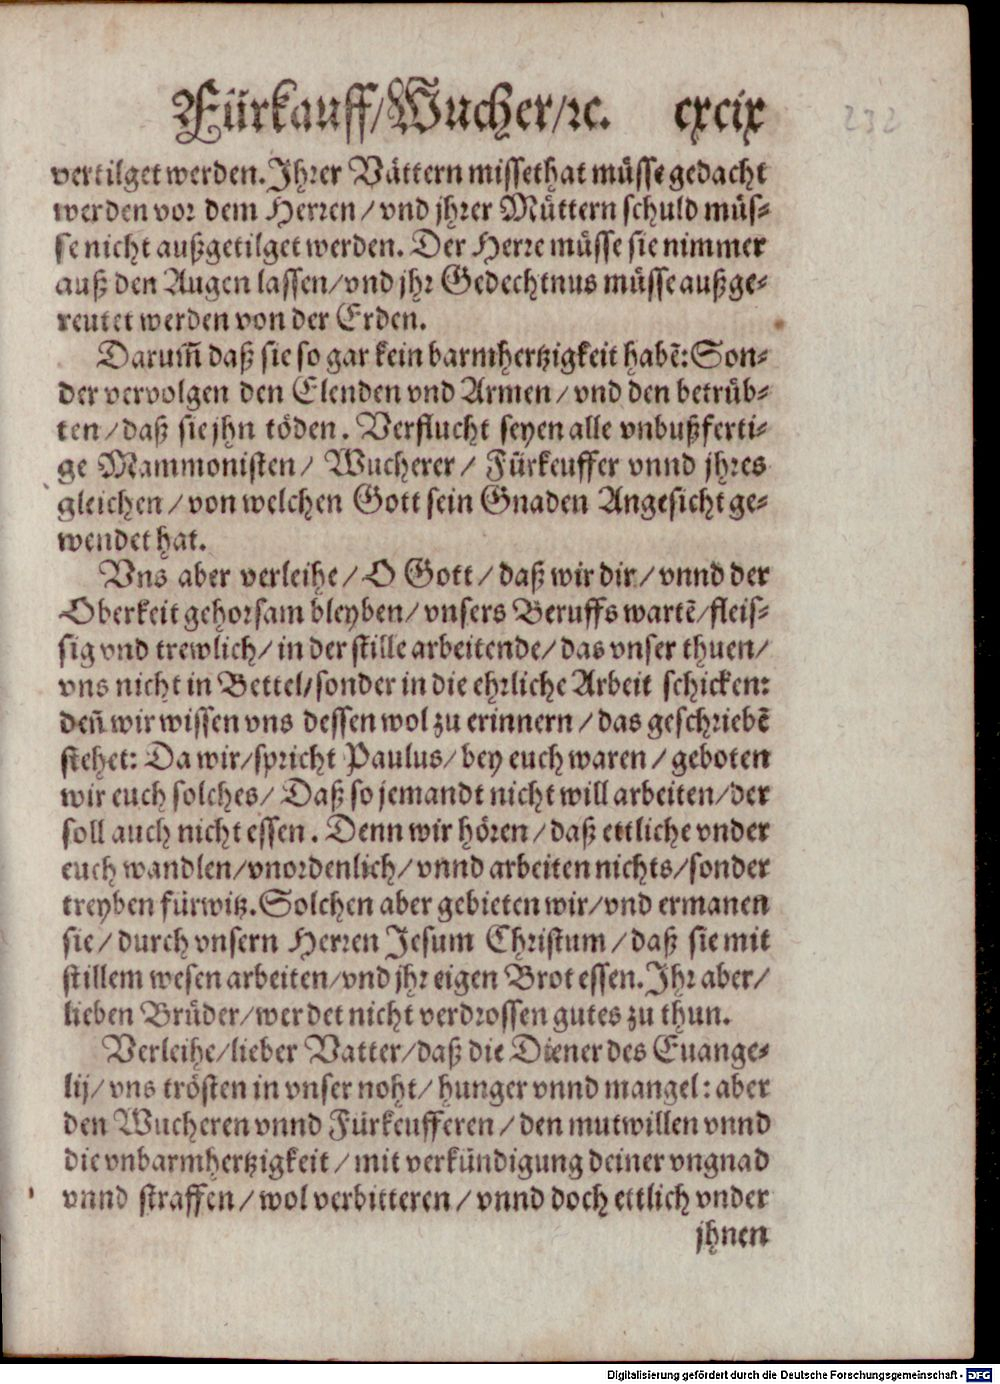 Fürkauff/Wucher/ꝛc. cxcix
232
vertilget werden. Jhrer Vättern missethat müsse gedacht
werden vor dem Herren/ vnd jhrer Müttern schuld müs-
se nicht außgetilget werden. Der Herre müsse sie nimmer
auß den Augen lassen/vnd jhr Gedechtnus müsse außge-
reutet werden von der Erden.
Darum̃ daß sie so gar kein barmhertzigkeit habẽ: Son-
der vervolgen den Elenden vnd Armen/ vnd den betrüb-
ten/ daß sie jhn töden. Verflucht seyen alle vnbußferti-
ge Mammonisten/ Wucherer/ Fürkeuffer vnnd jhres
gleichen/ von welchen Gott sein Gnaden Angesicht ge-
wendet hat.
Vns aber verleihe/ O Gott/ daß wir dir/ vnnd der
Oberkeit gehorsam bleyben/ vnsers Beruffs wartẽ/ fleis-
sig vnd trewlich/ in der stille arbeitende/ das vnser thuen/
vns nicht in Bettel/ sonder in die ehrliche Arbeit schicken:
deñ wir wissen vns dessen wol zu erinnern/ das geschriebẽ
stehet: Da wir/ spricht Paulus/ bey euch waren/ geboten
wir euch solches/ Daß so jemandt nicht will arbeiten/ der
soll auch nicht essen. Denn wir hören/ daß ettliche vnder
euch wandlen/ vnordenlich/ vnnd arbeiten nichts/ sonder
treyben fürwitz. Solchen aber gebieten wir/ vnd ermanen
sie/ durch vnsern Herren Jesum Christum/ daß sie mit
stillem wesen arbeiten/ vnd jhr eigen Brot essen. Jhr aber/
lieben Brüder/ werdet nicht verdrossen gutes zu thun.
Verleihe/ lieber Vatter/ daß die Diener des Euange-
lij/ vns trösten in vnser noht/ hunger vnnd mangel: aber
den Wucheren vnnd Fürkeufferen/ den mutwillen vnnd
die vnbarmhertzigkeit/ mit verkündigung deiner vngnad
vnnd straffen/ wol verbitteren/ vnnd doch ettlich vnder
jhnen
Digitalisierung gefördert durch die Deutsche Forschungsgemeinschaft - DFG